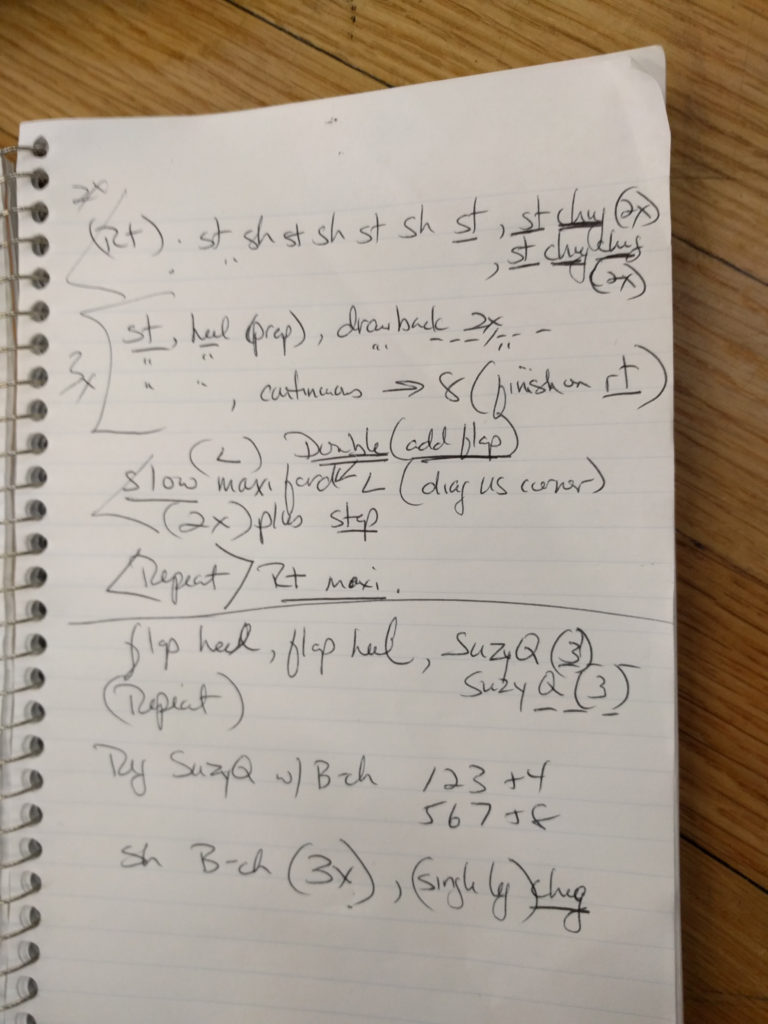 2x
(Rt). st sh st sh st sh st, st chug (2x)
" , st chug chug
(2x)
st, heel (prep), drawback 2x
" " " "
3x " " , continuous → 8 (finish on rt)
(L) Double (add flap)
Slow maxi ford L (diag US corner)
(2x) plus step
(Repeat) Rt maxi.
flap heel, flap heel, SuzyQ (3)
Suzy Q (3)
(Repeat)
Reg SuzyQ w/ B-ch 1 2 3 + 4
5 6 7 + 8
sh B-ch (3x), (single leg) chug